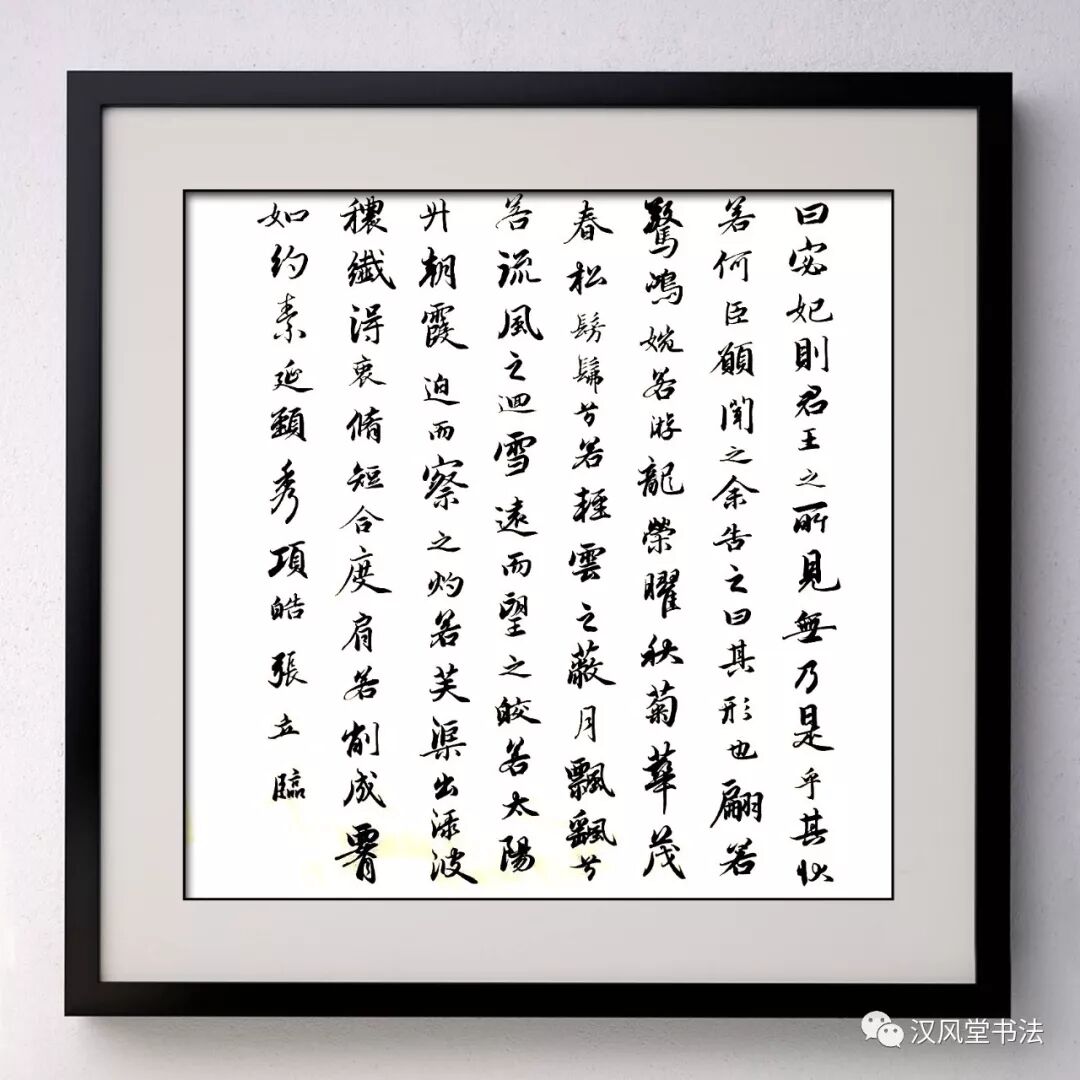 曰宓妃則君王之所見無乃是乎其狀
若何臣願聞之余告之曰其形也翩若
驚鴻婉若游龍榮曜秋菊華茂
春松髣髴兮若輕雲之蔽月飄飖兮
若流風之迴雪遠而望之皎若太陽
升朝霞迫而察之灼若芙渠出淥波
穠纖得衷脩短合度肩若削成腰
如約素延頸秀項皓張立臨
汉风堂书法